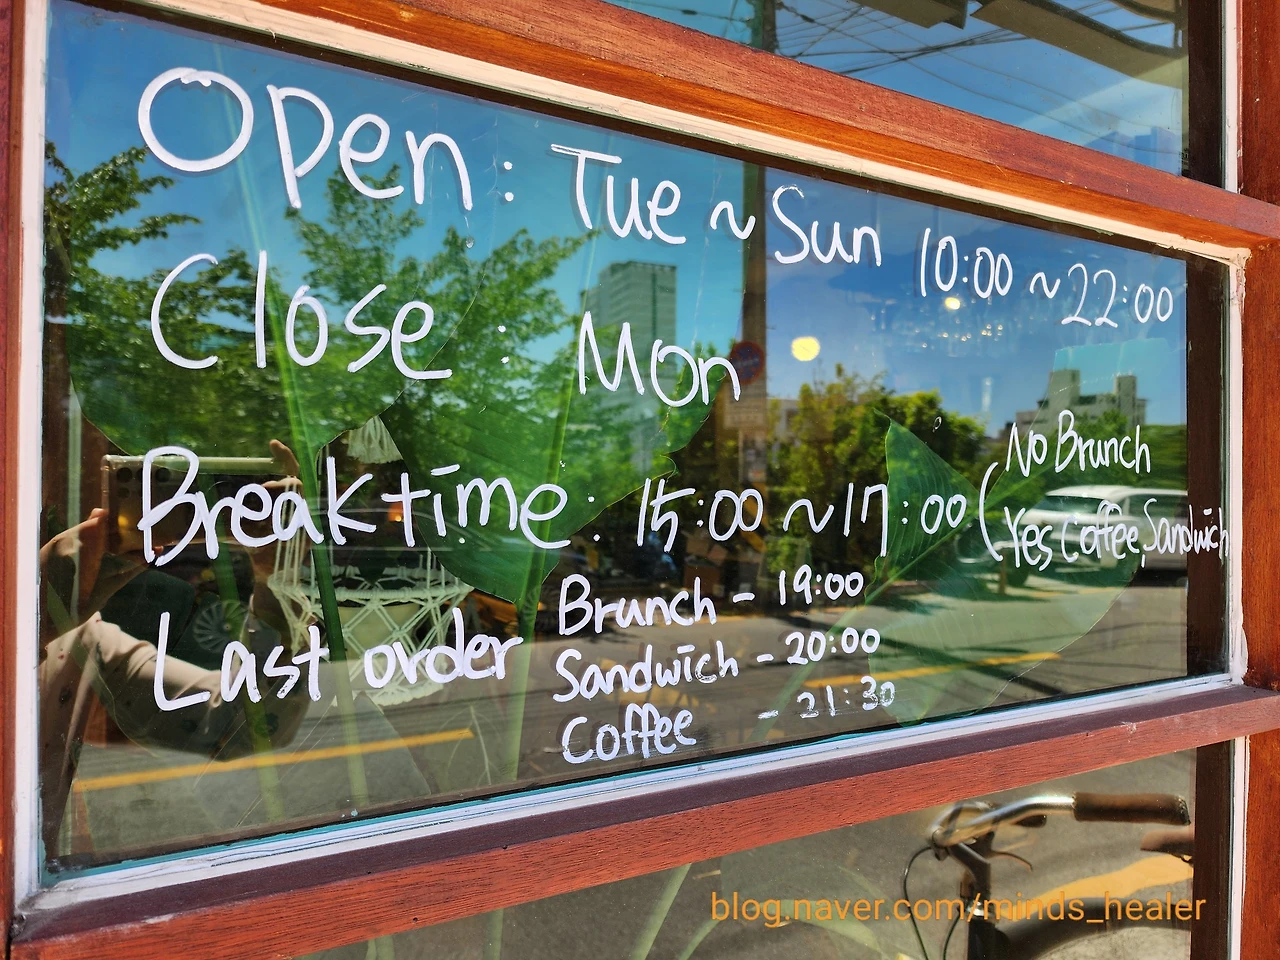 Open : Tue ~ Sun 10:00 ~ 22:00
Close : Mon
Breaktime : 15:00 ~ 17:00 (No Brunch
Yes Coffee, Sandwich
Last order Brunch - 19:00
Sandwich - 20:00
Coffee - 21:30
blog.naver.com/minds_healer